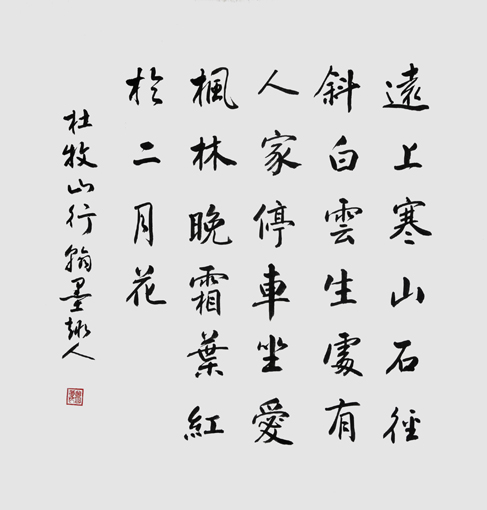 遠上寒山石徑
斜白雲生處有
人家停車坐愛
楓林晚霜葉紅
於二月花
杜牧山行翰墨趣人